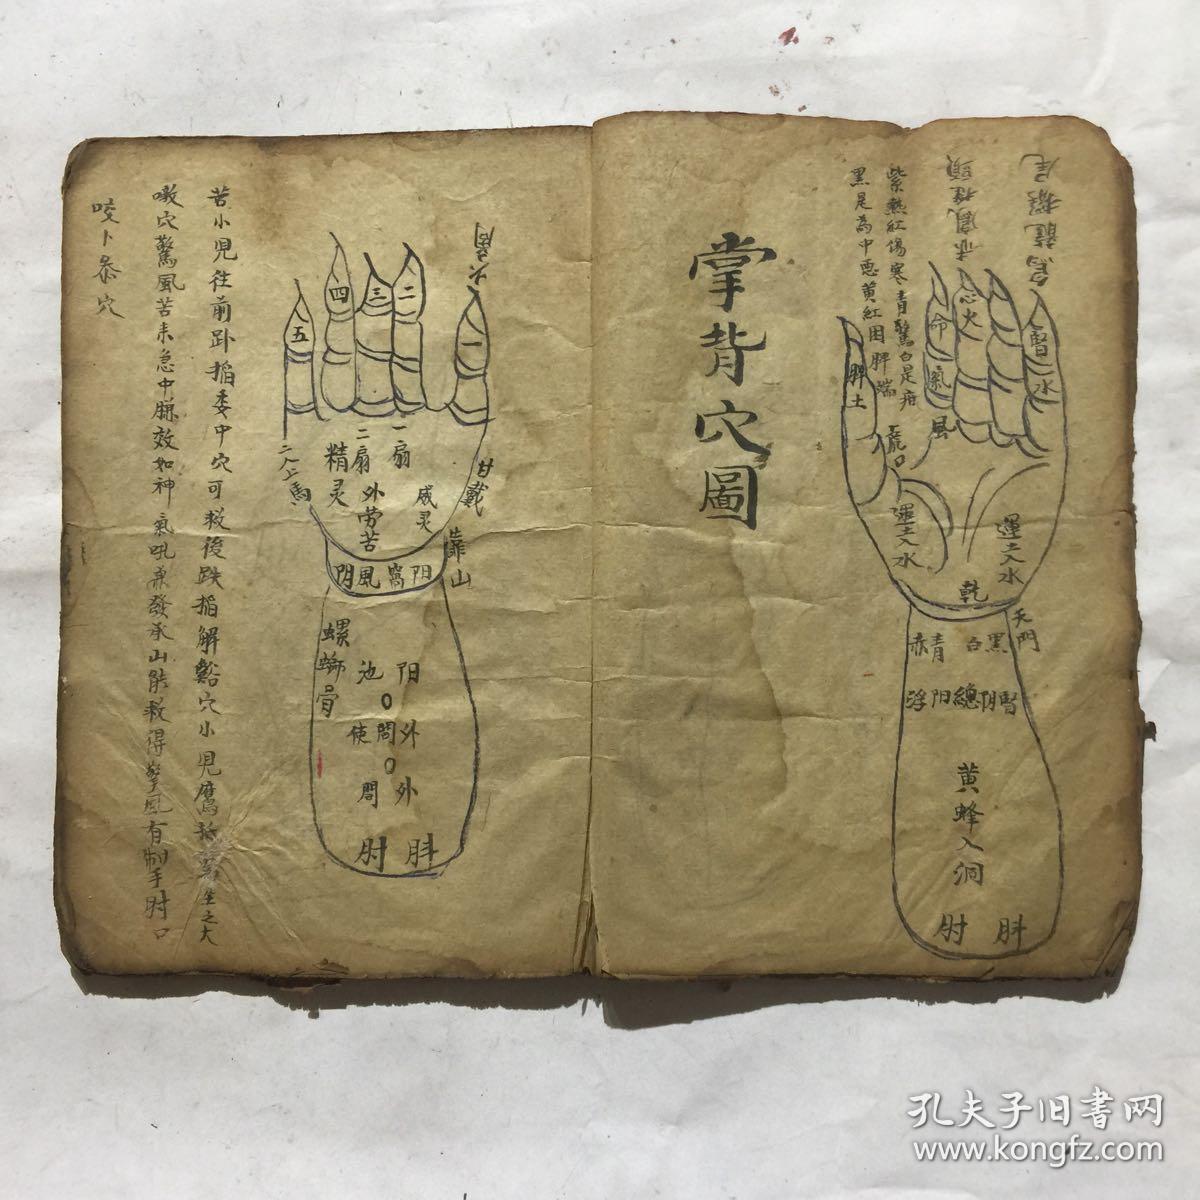 紫熱紅傷寒青驚白是疳
黑是為中惡黃紅困脾端
腎水
心火
命
氣
風
脾土
運土入水
運土入水
乾
天門
赤青白黑
浮陽總阴腎
黃蜂入洞
肘
掌背穴圖
一
二
三
四
五
一扇
二扇
威灵
精灵
外劳苦
甘載
靠山
二人上馬
阴風窩阳
螺螄骨
阳池
外間使
外間
肘
苦小児往前趴掐委中穴可救後跌掐解谿穴小児鷹
嗽穴驚風苦未急中脉效如神氣吼兼發承山能救得驚風有制手肘口
咬卜叅穴
孔夫子旧书网
www.kongfz.com